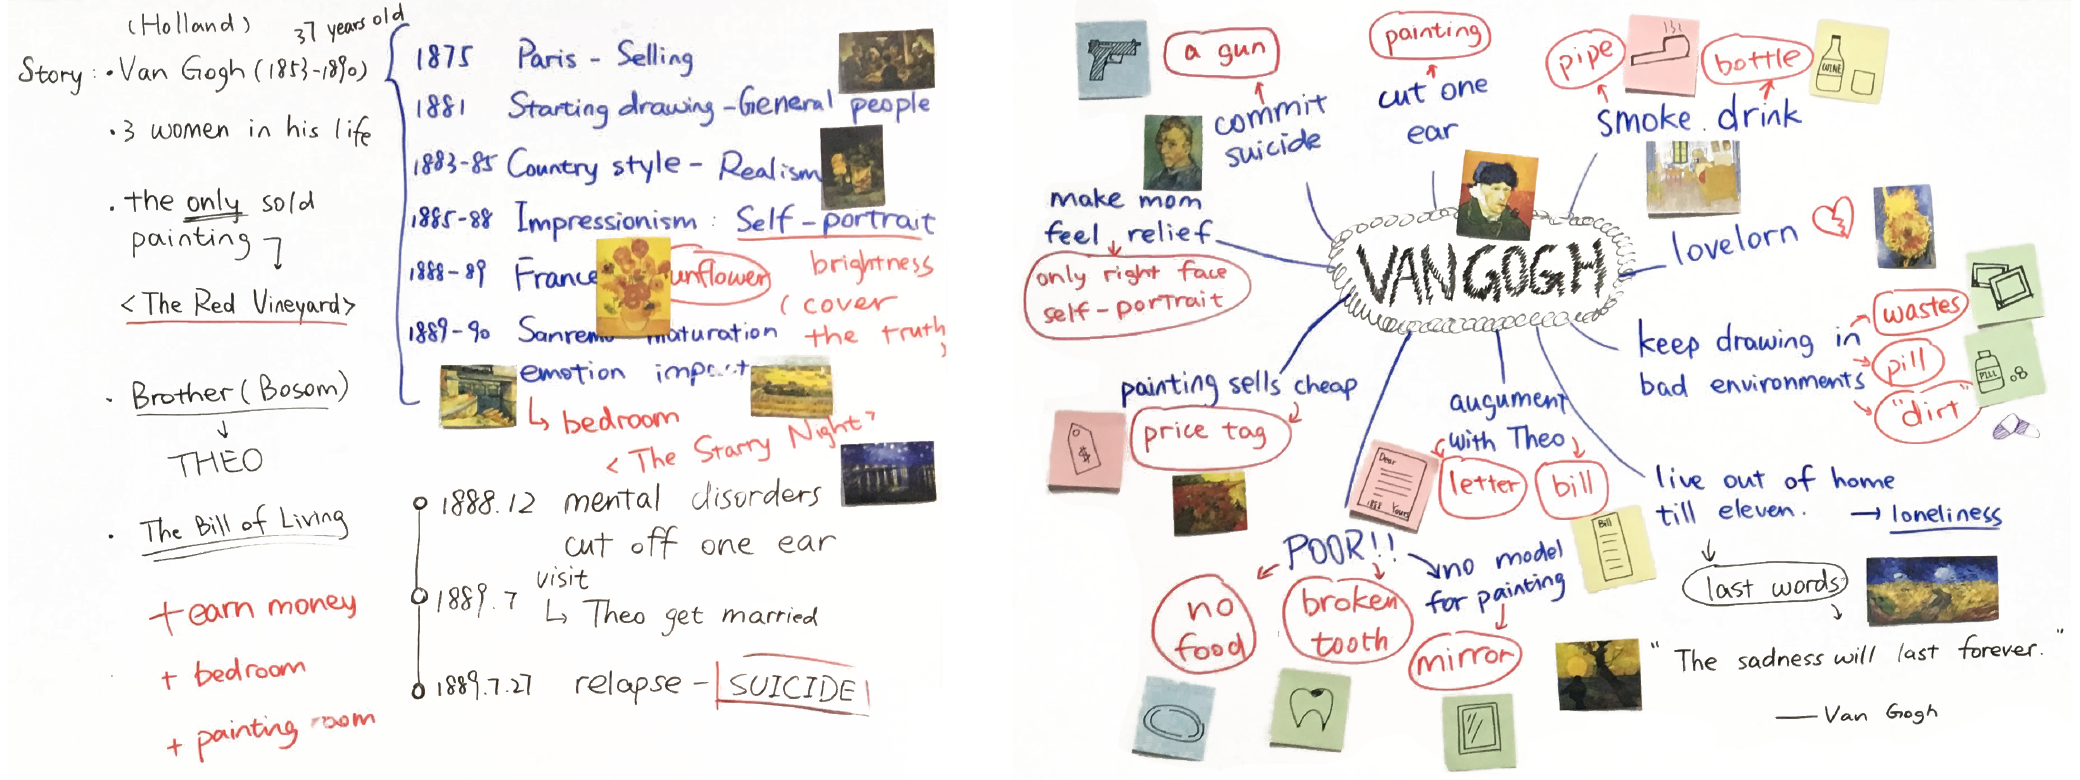 (Holland)
37 years old
Story: • Van Gogh (1853-1890)
• 3 women in his life
• the only sold
painting
<The Red Vineyard>
• Brother (Bosom)
THEO
• The Bill of Living
+ earn money
+ bedroom
+ painting room
1875 Paris - Selling
1881 Starting drawing - General people
1883-85 Country style - Realism
1885-88 Impressionism : Self-portrait
1888-89 France unflower
brightness
(cover
the truth)
1889-90 Sanrem maturation
emotion impact
↳ bedroom
<The Starry Night>
1888.12 mental disorders
cut off one ear
1889.7 visit
↳ Theo get married
1889.7.27 relapse - SUICIDE
a gun
commit
suicide
painting
cut one
ear
pipe
bottle
WINE
smoke. drink
make mom
feel relief
only right face
self-portrait
VAN GOGH
lovelorn
keep drawing in
bad environments
wastes
pill
"dirt"
PILL
painting sells cheap
price tag
$
augument
with Theo
letter
bill
Dear
Yours
Bill
live out of home
till eleven. → loneliness
last words
"The sadness will last forever."
— Van Gogh
POOR!!
no
food
broken
tooth
no model
for painting
mirror